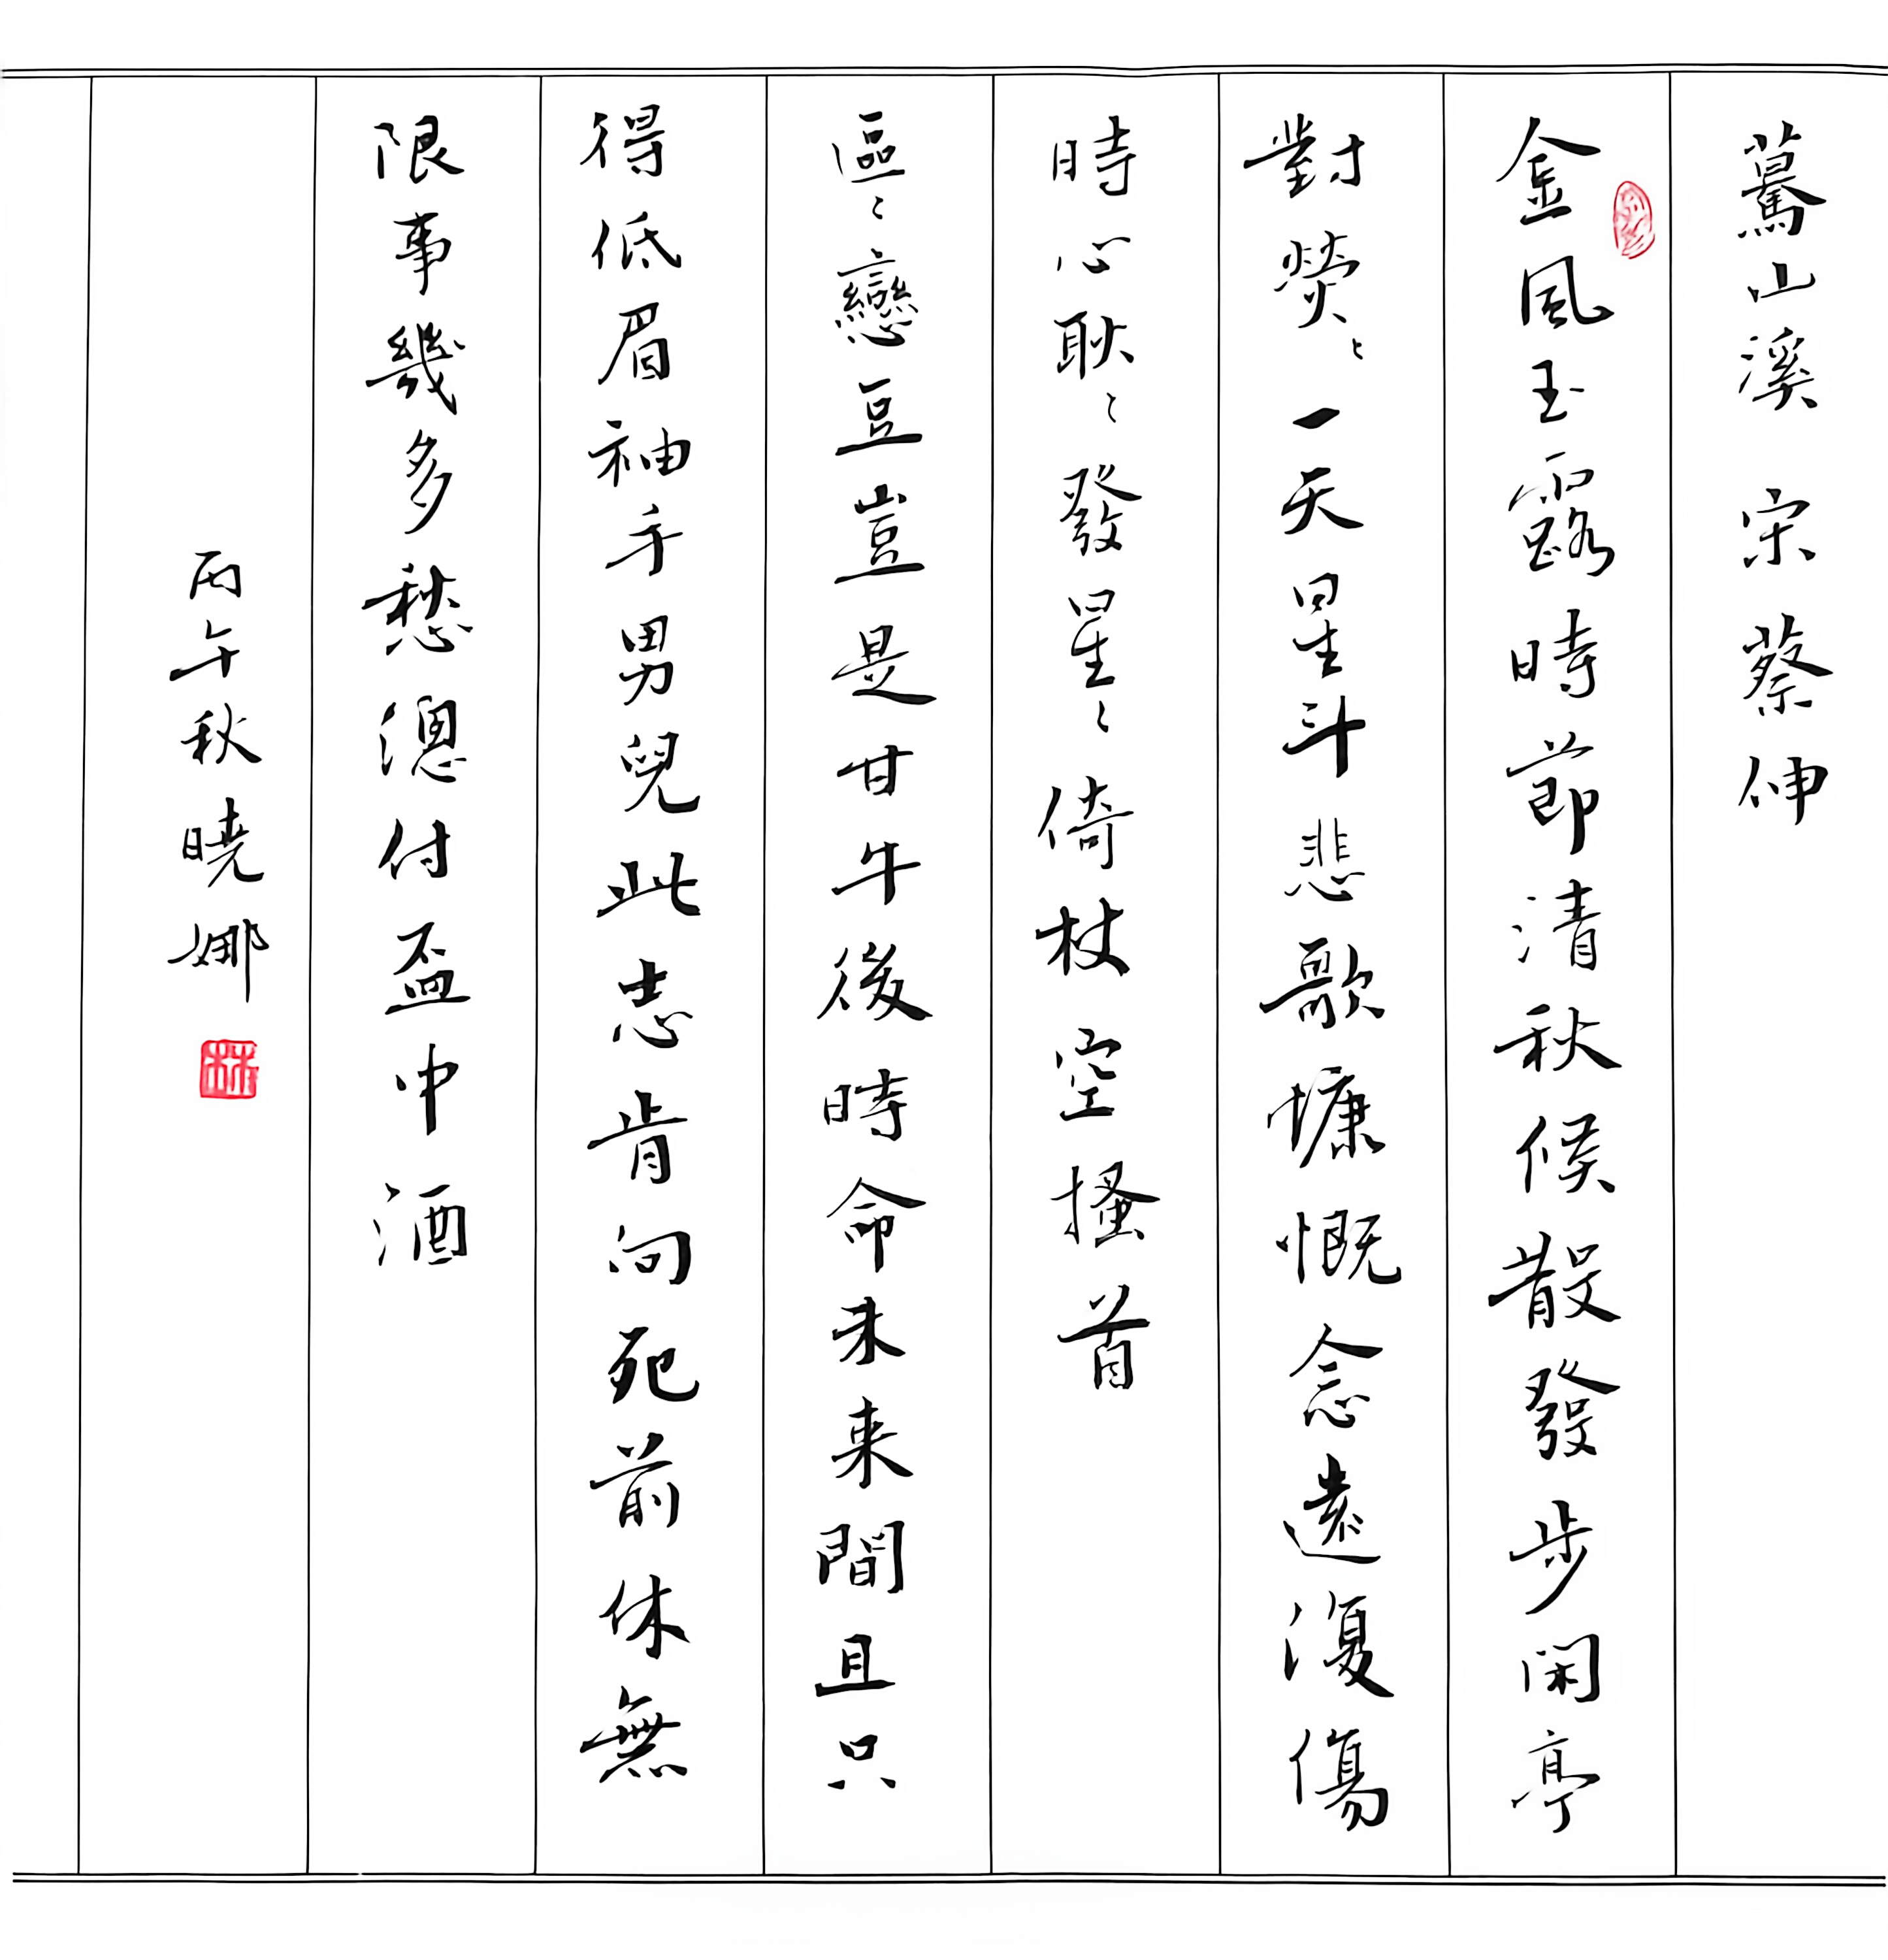 驀山溪 宗蔡伸
金風玉露時節清秋候散發步閑亭
對熒〻一天星斗悲歌慷慨念遠復傷
時心耿〻發星〻倚杖空搔首
區〻戀豆豈是甘牛後時命未来間且只
得低眉袖手男兒此志肯向死前休無
限事幾多愁總付盃中酒
丙午秋曉娜
林